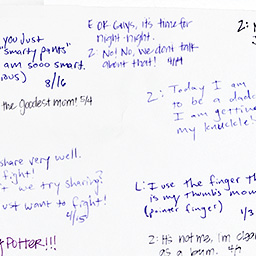 you Just
"smarty pants"
am sooo smart.
ious) 8/16
E: OK Guys, it's time for
night-night.
Z: No! No, we dont talk
about that! 4/14
2:
the goodest mom! 5/4
Z: Today I am
to be a dad
I am gettin
my knuckle!
share very well.
fight!
we try sharing?
ust want to fight!
4/15
L: I use the finger th
is my thumb's mom
(pointer finger) 1/3
y POTTER!!!
Z: It's not me, I'm clean
as a bum. 4/